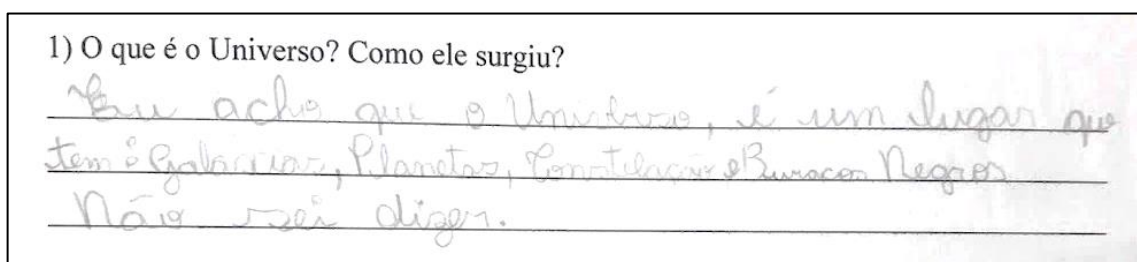 1) O que é o Universo? Como ele surgiu?
Eu acho que o Universo, é um lugar que
tem : Galacias, Planetas, Constelação e Buracos Negros
Não sei dizer.